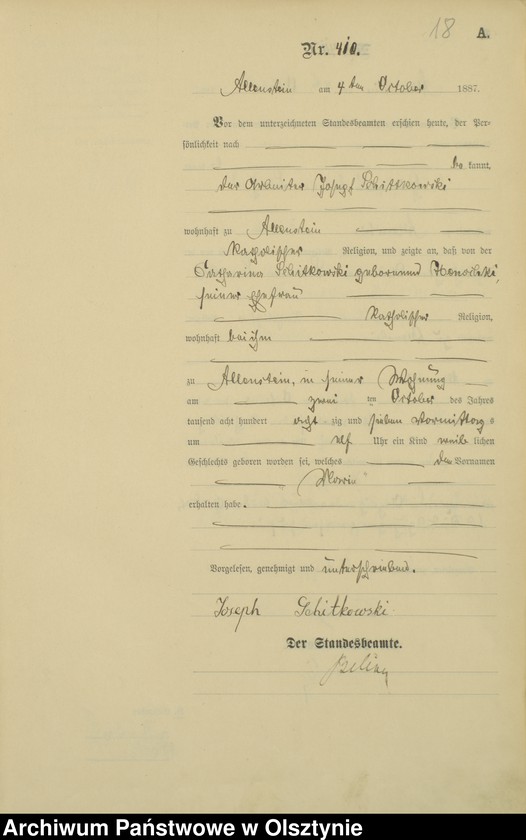 18 A.
Nr. 410.
Allenstein am 4 ten October 1887.
Vor dem unterzeichneten Standesbeamten erschien heute, der Per-
sönlichkeit nach
be kannt,
der Arbeiter Joseph Schitkowski
wohnhaft zu Allenstein
katholischer Religion, und zeigte an, daß von der
Catharina Schitkowski geborenen
seiner Ehefrau
katholischer Religion,
wohnhaft bei ihm
zu Allenstein, in seiner Wohnung
am zwei ten October des Jahres
tausend acht hundert acht zig und sieben Vormittag s
um elf Uhr ein Kind weib lichen
Geschlechts geboren worden sei, welches den Vornamen
Maria
erhalten habe.
Vorgelesen, genehmigt und unterschrieben.
Joseph Schitkowski
Der Standesbeamte.
Archiwum Państwowe w Olsztynie